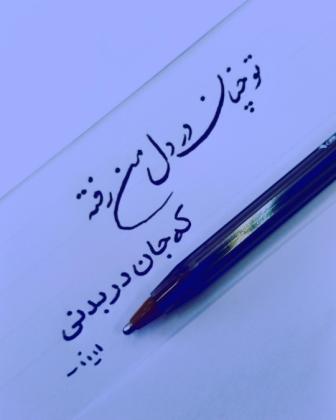 تو چنان در دل من رفته
که جان در بدنی